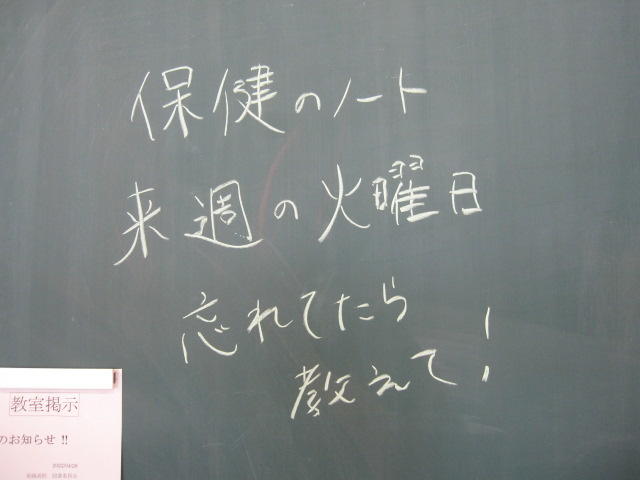 保健のノート
来週の火曜日
忘れてたら
教えて!
教室掲示
のお知らせ!!